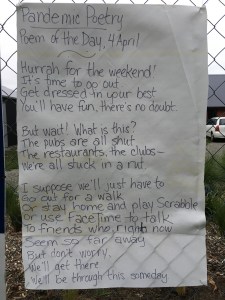 Pandemic Poetry
Poem of the Day, 4 April
Hurrah for the weekend!
It's time to go out
Get dressed in your best
You'll have fun, there's no doubt.
But wait! What is this?
The pubs are all shut
The restaurants, the clubs—
We're all stuck in a rut
I suppose we'll just have to
Go out for a walk
Or stay home and play Scrabble
Or use FaceTime to talk
To friends who right now
Seem so far away
But don't worry,
We'll get there
We'll be through this someday